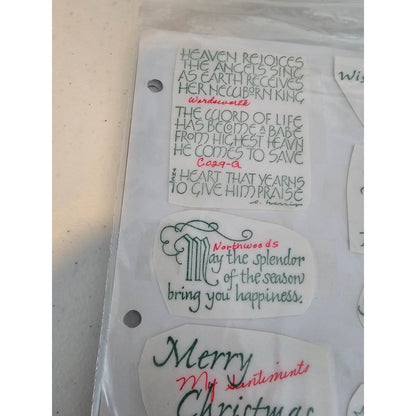 HEAVEN REJOICES
THE ANGELS SING
AS EARTH RECEIVES
HER NEWBORN KING
Wordsworth
THE WORD OF LIFE
HAS BECOME A BABE
FROM HIGHEST HEAVN
HE COMES TO SAVE
C029-G
HEART THAT YEARNS
TO GIVE HIM PRAISE
Northwoods
May the splendor
of the season
bring you happiness.
Merry
My Sentiments
Christmas
Wis